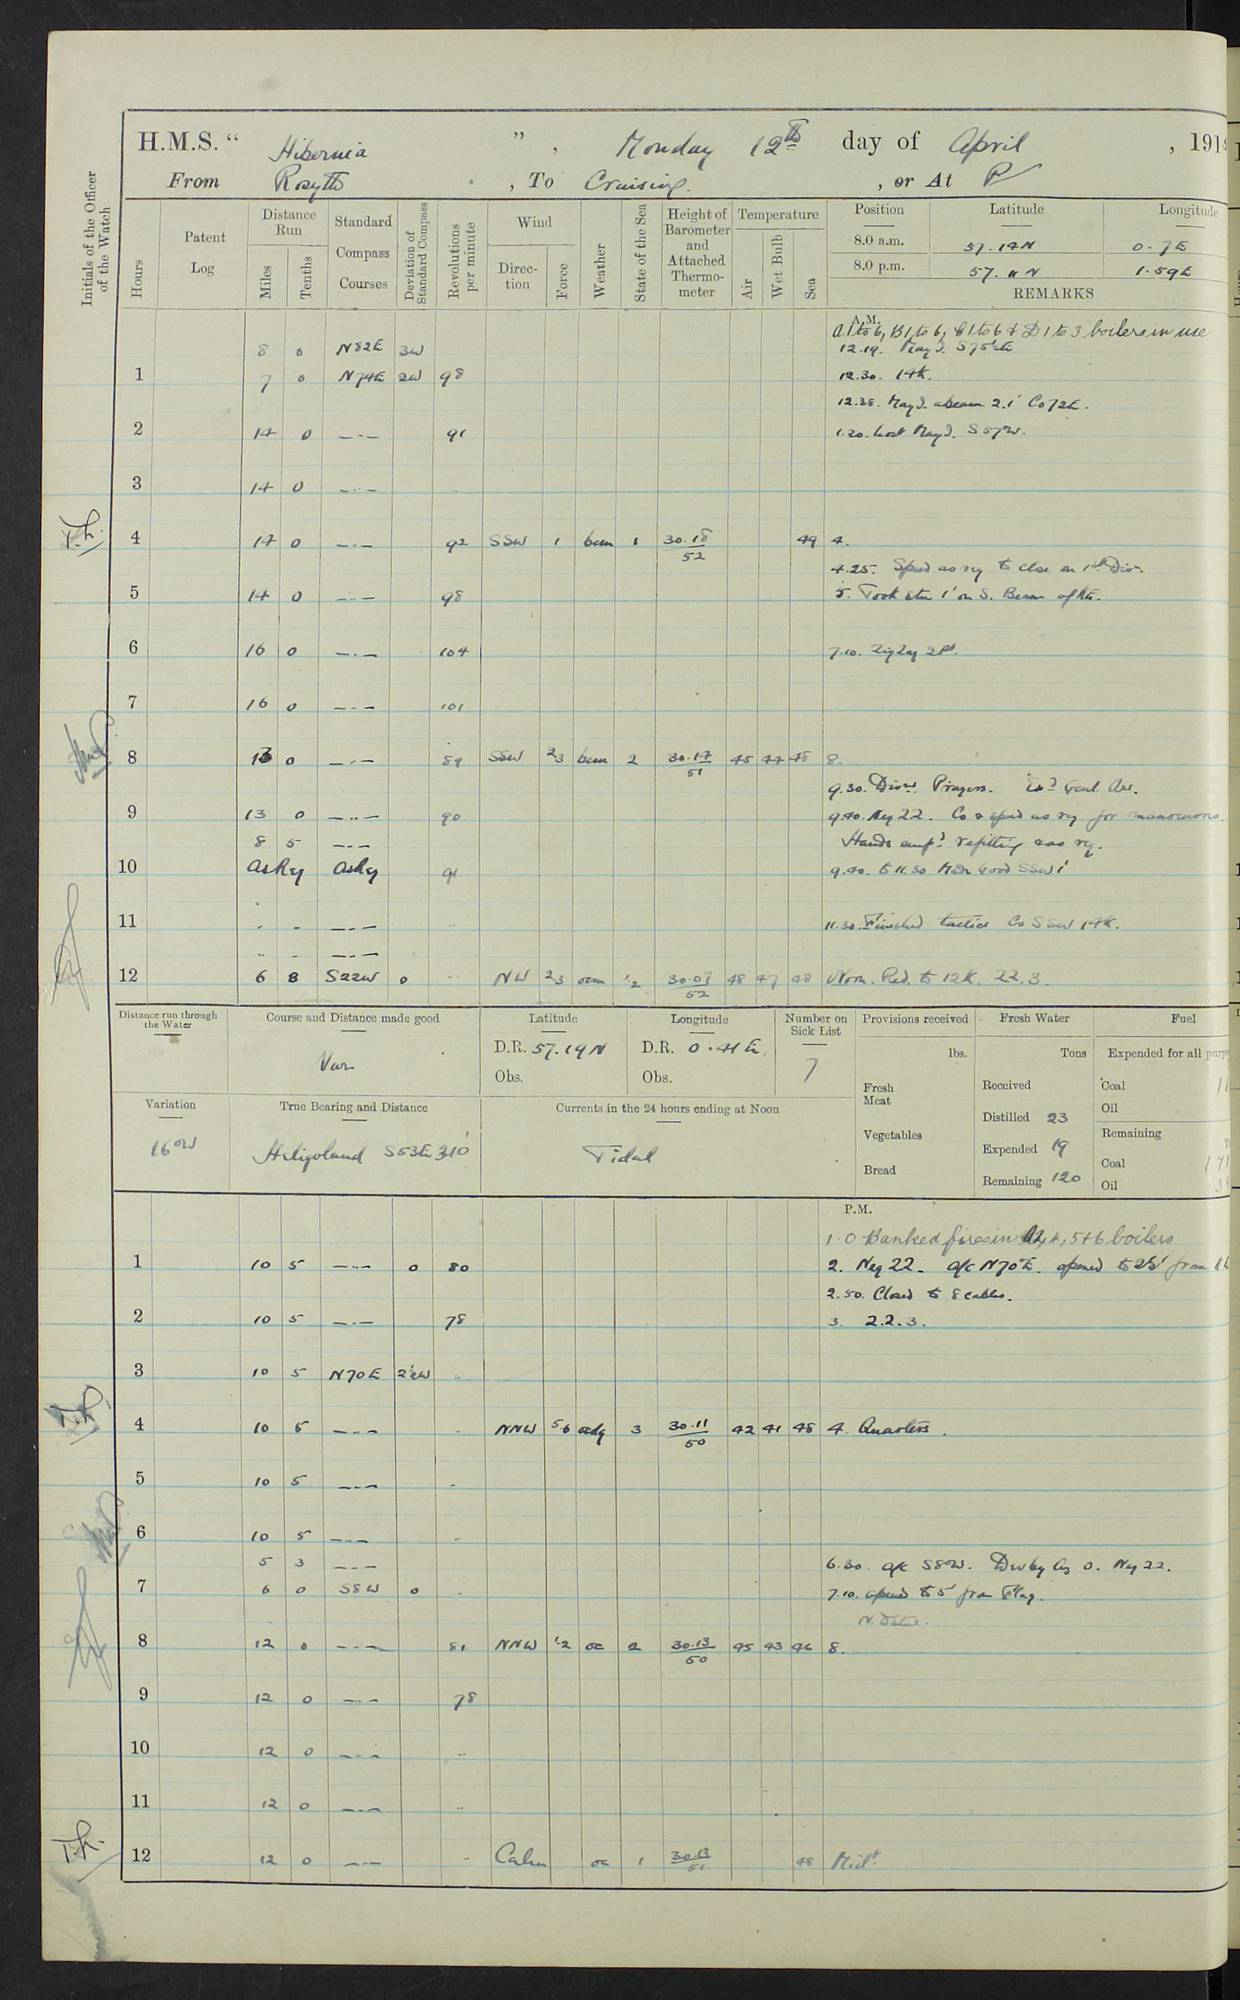 H.M.S. " Hibernia ", Monday 12th day of April, 191
From Rosyth, To Cruising., or At
Initials of the Officer of the Watch
Hours
Patent Log
Distance Run
Miles
Tenths
Standard Compass Courses
Deviation of Standard Compass
Revolutions per minute
Wind
Direction
Force
Weather
State of the Sea
Height of Barometer and Attached Thermometer
Temperature
Air
Wet Bulb
Sea
Position Latitude Longitude
8.0 a.m. 57.14N 0.7E
8.0 p.m. 57.11N 1.59E
REMARKS
A.M.
A1 to 6, B1 to 6, C1 to 6 & D1 to 3 boilers in use
8 0 N82E 3W 12.19. May I.
1 7 0 N74E 2W 98 12.30. 14K.
12.38. May I. abeam 2.1' Co 72E.
2 14 0 —·— 91 1.20. Lost May I. S57W.
3 14 0 —·—
4 14 0 —·— 92 SSW 1 bcm 1 30.18/52 49 4.
4.25. Speed as ry to close on 1st Div.
5 14 0 —·— 98 5. Took stn 1' on S. Beam of
6 16 0 —·— 104 7.10. Zig Zag 2Pt.
7 16 0 —·— 101
8 13 0 —·— 89 SSW 2/3 bcm 2 30.17/51 45 44 48 8.
9.30. Divns. Prayers.
9 13 0 —·— 90 9.40. Neg 22. Co & speed as ry for manoeuvres.
8 5 —·— Hands empd refitting & as ry.
10 As Ry As Ry 91 9.40. to 11.30 Made Good SSW 1'
11 " " —·— " 11.30. Finished tactics Co SSW 14K.
" " —·—
12 6 8 S22W 0 " NW 2/3 ocm 1/2 30.07/52 48 47 48 Noon. Red. to 12K. 22.3.
Distance run through the Water
Course and Distance made good
Var
Latitude
D.R. 57.19N
Obs.
Longitude
D.R. 0.41E.
Obs.
Number on Sick List
7
Provisions received
lbs.
Fresh Meat
Vegetables
Bread
Fresh Water
Tons
Received
Distilled 23
Expended 19
Remaining 120
Fuel
Expended for all
Coal
Oil
Remaining
Coal
Oil
Variation
16°W
True Bearing and Distance
Heligoland S53E 310'
Currents in the 24 hours ending at Noon
Tidal
P.M.
1.0 Banked fires in 5+6 boilers
1 10 5 —·— 0 80 2. Neg 22. a/c N70E. opened to 2½' from
2.50. Closed to 8 cables.
2 10 5 —·— 78 3. 2.2.3.
3 10 5 N70E 2½W "
4 10 5 —·— " NNW 5.6 3 30.11/50 42 41 48 4. Quarters.
5 10 5 —·— "
6 10 5 —·— "
5 3 —·— 6.30. a/c S8W. Neg 22.
7 6 0 S8W 0 " 7.10. opened to 5' from Flag.
8 12 0 —·— 81 NNW 1.2 oc 2 30.13/50 45 43 46 8.
9 12 0 —·— 78
10 12 0 —·— "
11 12 0 —·— "
12 12 0 —·— " Calm oc 1 30.13/51 48 Midt.